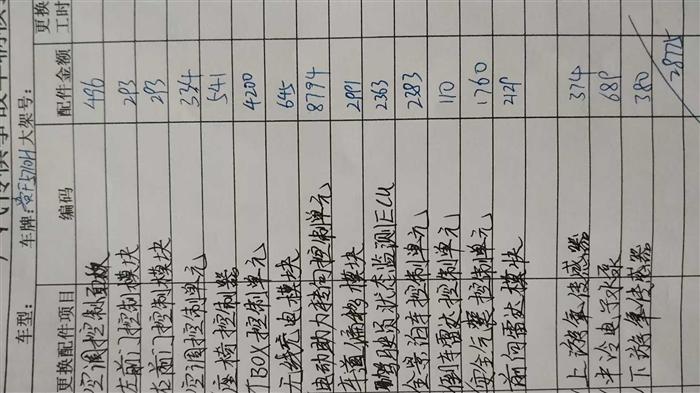 车型： 车牌： 大架号：
更换配件项目 编码 配件金额 更换工时
空调控制面板 496
左前门控制模块 293
右前门控制模块 293
空调控制单元 334
座椅控制器 541
TBOX控制单元 4200
无线充电模块 645
电动助力转向控制单元 8794
车道偏移模块 2991
驾驶员状态监测ECU 2363
全景泊车控制单元 2383
倒车雷达控制单元 110
安全气囊控制单元 1760
前向雷达模块 2129
上游氧传感器 374
中冷电子水泵 689
下游氧传感器 380
28775